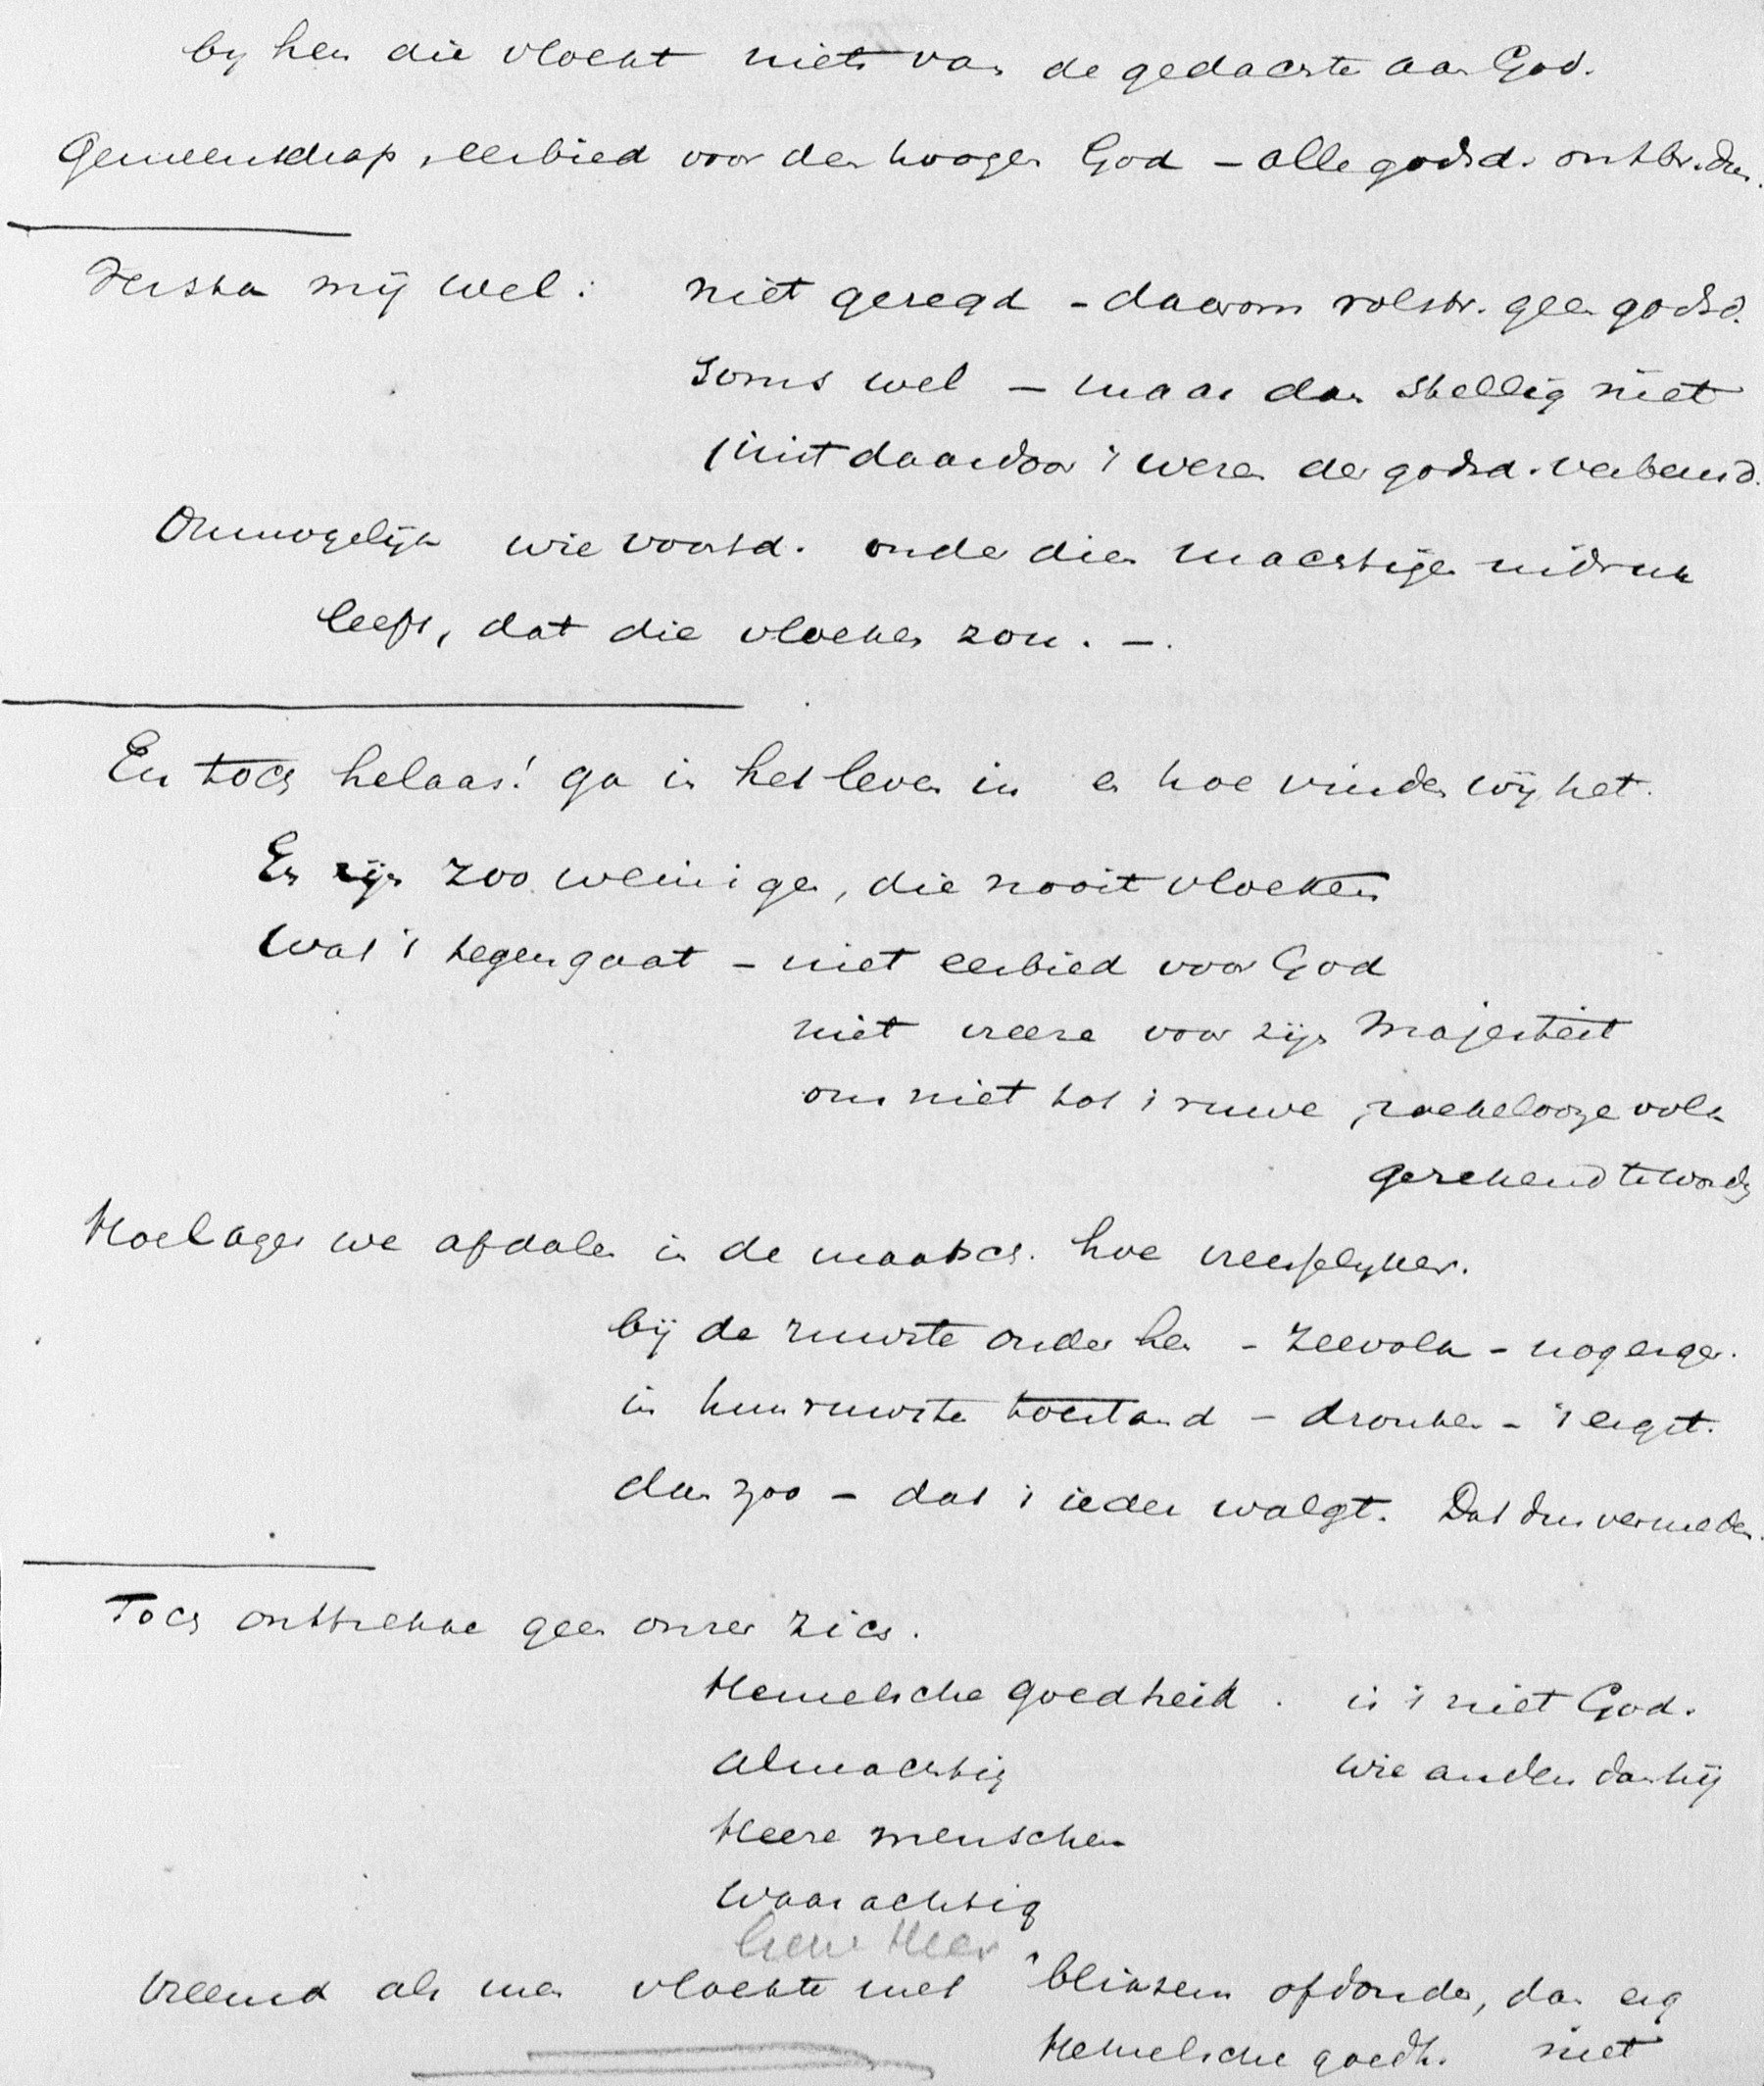 by hen die vloekt niets van de gedachte aan God.
Gemeenschap, eerbied voor den hoogen God – alle godsd. ontbr. dus.
Versta mij wel: niet gezegd – daarom volstr. geen godsd.
Soms wel – maar dan stellig niet
(niet daardoor 't wezen der godsd. verband.
Onmogelijk wie voortd. onder dien machtigen indruk
leeft, dat die vloeken zou. –.
En toch helaas! ga in het leven in en hoe vinden wij het.
Er zijn zoo weinigen, die nooit vloeken
Wat 't tegengaat – niet eerbied voor God
niet vreeze voor zijn Majesteit
om niet tot 't ruwe, roekelooze volk
gerekend te worden
Hoe lager we afdalen in de maatsch. hoe vreeselyker.
bij de ruwste onder hen – zeevolk – nog erger.
in hun ruwste toestand – dronken – 't ergst.
dan zoo – dat 't ieder walgt. Dat dus vermeden.
Toch onttrekke geen onzer zich.
Hemelsche goedheid. is 't niet God.
almachtig wie anders dan hij
Heere menschen
waarachtig
lieve Heer
Vreemd als men vloekte met bliksem of donder, dan erg
Hemelsche goedh. niet